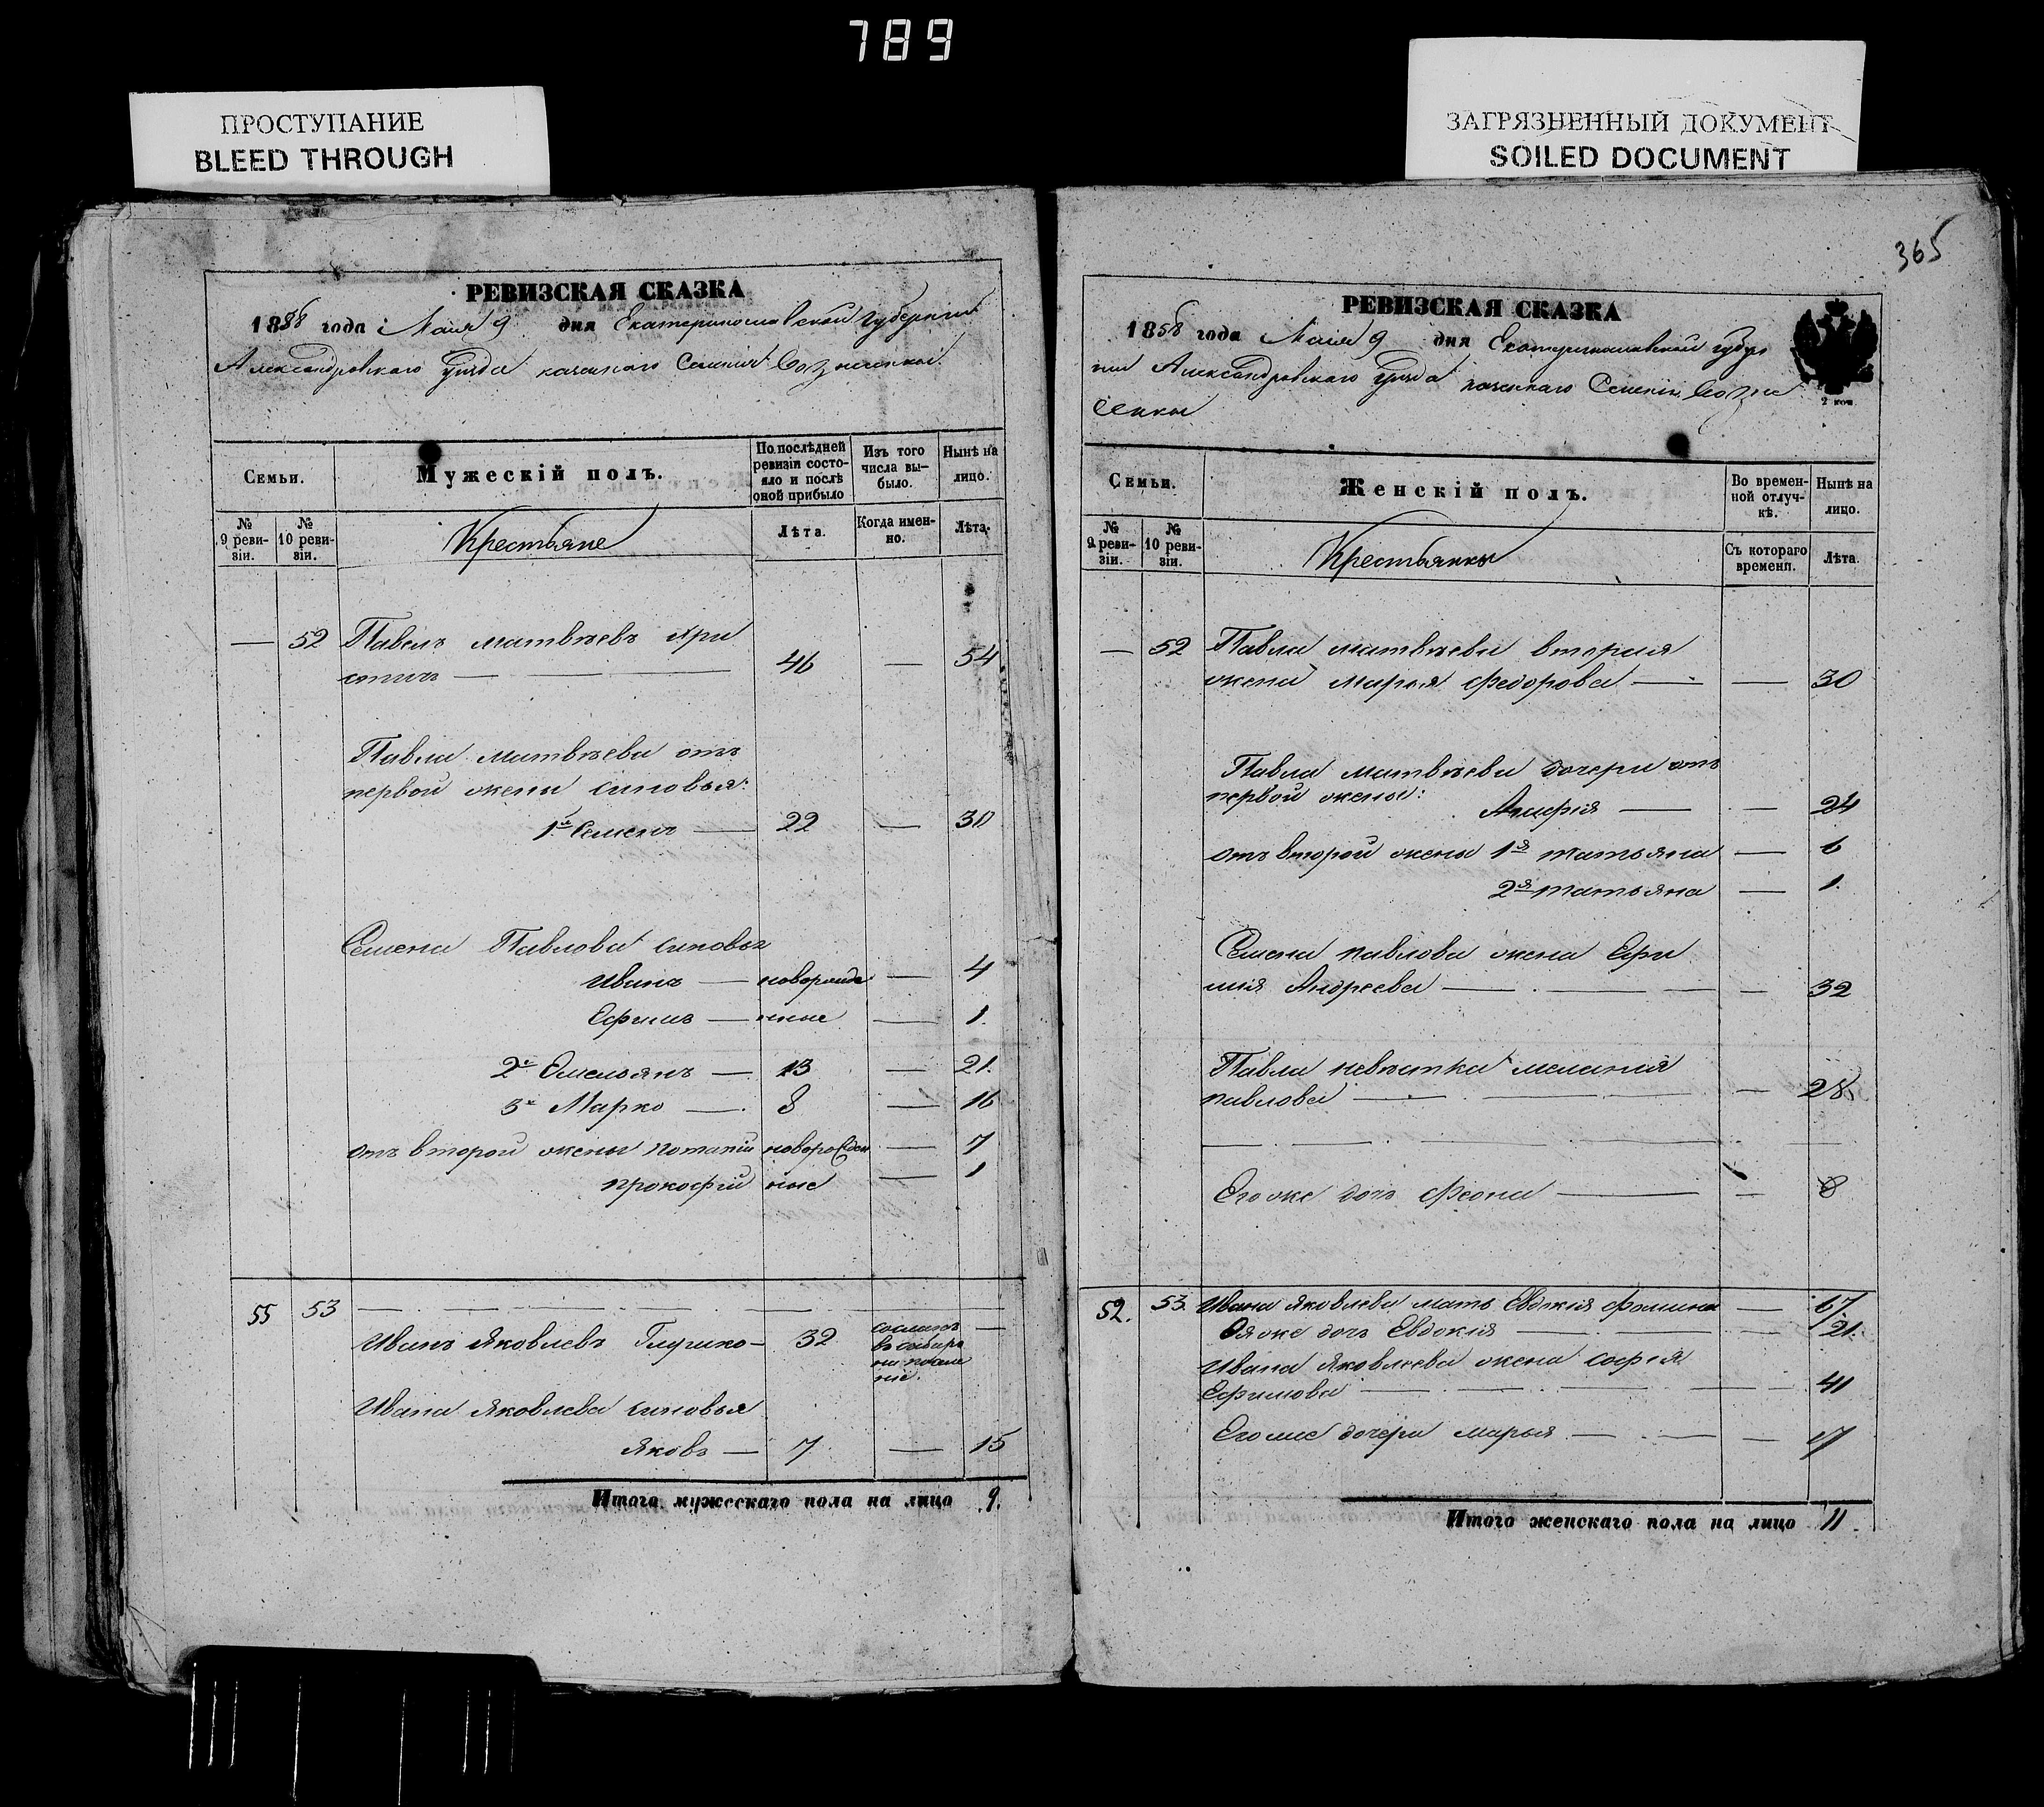 789
ПРОСТУПАНИЕ
BLEED THROUGH
ЗАГРЯЗНЕННЫЙ ДОКУМЕНТ
SOILED DOCUMENT
РЕВИЗСКАЯ СКАЗКА
1858 года Маія 9 дня Екатеринославской Губерніи
Александровскаго уезда казеннаго Селенія
Семьи.
Мужескій полъ.
По послѣдней ревизіи состо-
яло и послѣ оной прибыло
Изъ того числа вы-
было.
Нынѣ на лицо.
№ 9 реви-
зіи.
№ 10 реви-
зіи.
Крестьяне
Лѣта.
Когда имен-
но.
Лѣта.
— 52 Павелъ Матвѣевъ Хри
стичъ — 46 — 54
Павла Матвѣева отъ
первой жены сыновья:
1й Семенъ — 22 — 30
Семена Павлова сыновья
Иванъ — новорожде — 4
Ефимъ — нные — 1.
2й Емельянъ — 13 — 21.
3й Марко — 8 — 16
отъ второй жены Потапій новорожден — 7
Прокофій ные — 1
55 53
Иванъ Яковлевъ Глушко — 32 сосланъ —
въ сибирь
на поселе
ніе.
Ивана Яковлева сыновья
Яковъ — 7 — 15
Итого мужескаго пола на лицо 9.
365
РЕВИЗСКАЯ СКАЗКА
1858 года Маія 9 дня Екатеринославской губер
ніи Александровскаго уезда казеннаго Селенія Возне
сенки
2 коп.
Семьи.
Женскій полъ.
Во времен-
ной отлуч-
кѣ.
Нынѣ на лицо.
№ 9 реви-
зіи.
№ 10 реви-
зіи.
Крестьянки
Съ котораго времени.
Лѣта.
— 52 Павла Матвѣева вторая
жена Марья Федорова — — 30
Павла Матвѣева дочери отъ
первой жены:
Агафія — — 24
отъ второй жены 1я Татьяна — 6
2я Татьяна — 1.
Семена Павлова жена Ефи
мія Андреева — — 32
Павла невѣстка Меланія
Павлова — — 28
Его же дочь Феона — — 8
52. 53. Ивана Яковлева мать Евдокія Фомина — 67.
Ея же дочь Евдокія — — 21.
Ивана Яковлева жена Софія
Ефимова — — 41
Его же дочери Марья — — 17
Итого женскаго пола на лицо 11.